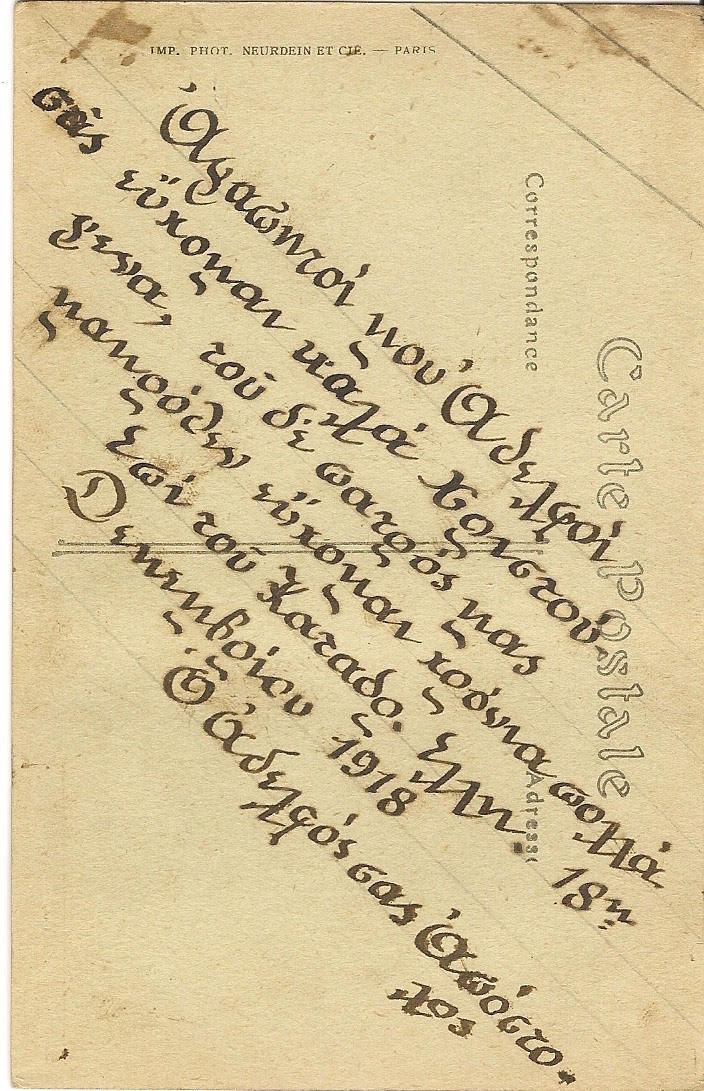 IMP. PHOT. NEURDEIN ET CIE. — PARIS
Carte Postale
Correspondance
Adresse
Ἀγαπητοί μου Ἀδελφοί
σᾶς εὔχομαι καλά Χρηστού
γενα, τοῦ δὲ πατρός μας
μακρόθεν εὔχομαι χρόνια πολλά
Ἐπί τοῦ Καταδρ. Ἕλλη. 18η
Δεκεμβρίου 1918
Ὁ Ἀδελφός σας Ἀπόστο-
λος